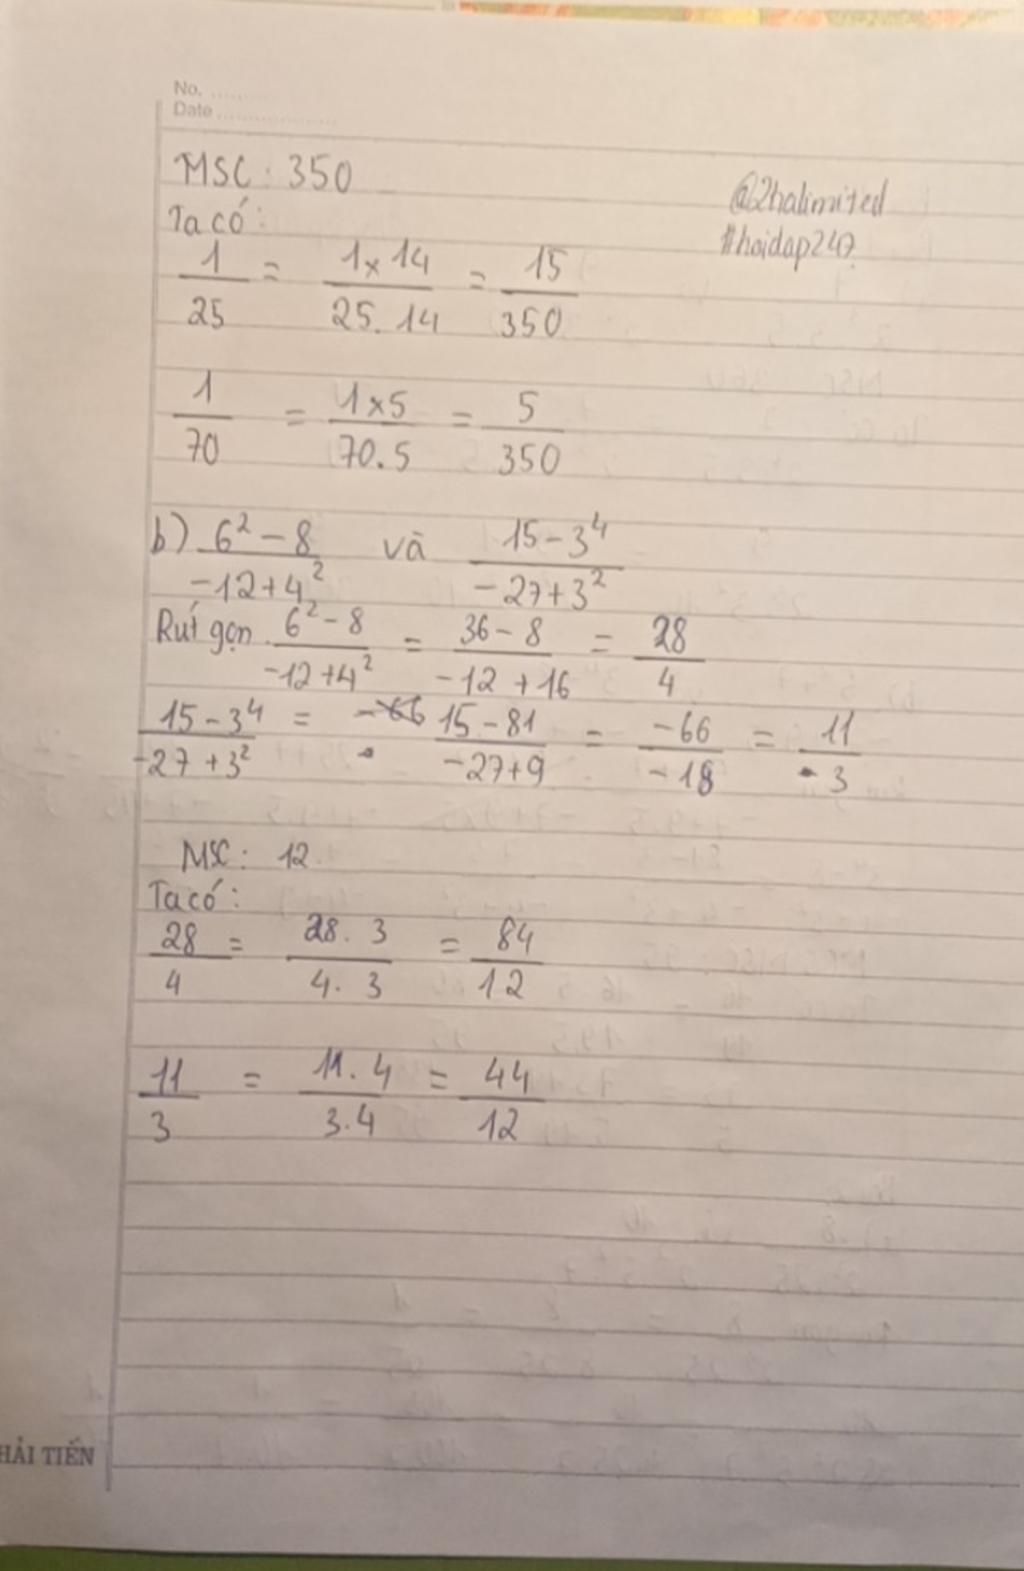 No. ........
Date ................
MSC: 350
@2halimited
Ta có:
#hoidap247
1/25 = 1x14/25.14 = 15/350
1/70 = 1x5/70.5 = 5/350
b) 6²-8/-12+4² và 15-3⁴/-27+3²
Rút gọn 6²-8/-12+4² = 36-8/-12+16 = 28/4
15-3⁴/-27+3² = 15-81/-27+9 = -66/-18 = 11/3
MSC: 12
Ta có:
28/4 = 28.3/4.3 = 84/12
11/3 = 11.4/3.4 = 44/12
HẢI TIẾN